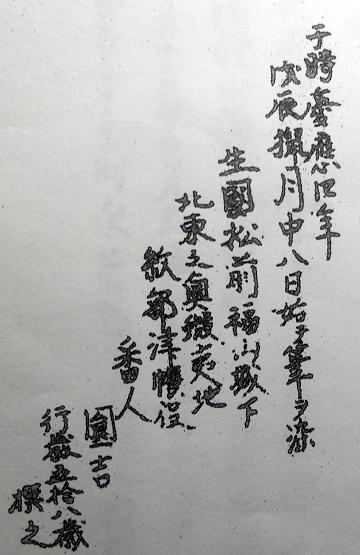 于時慶應四年
戊辰猟月中八日始テ筆ヲ染
生國松前福山城下
北東之奥微夷地
紋部津幌徃
番人
圓吉
行歳五拾八歳
撰之